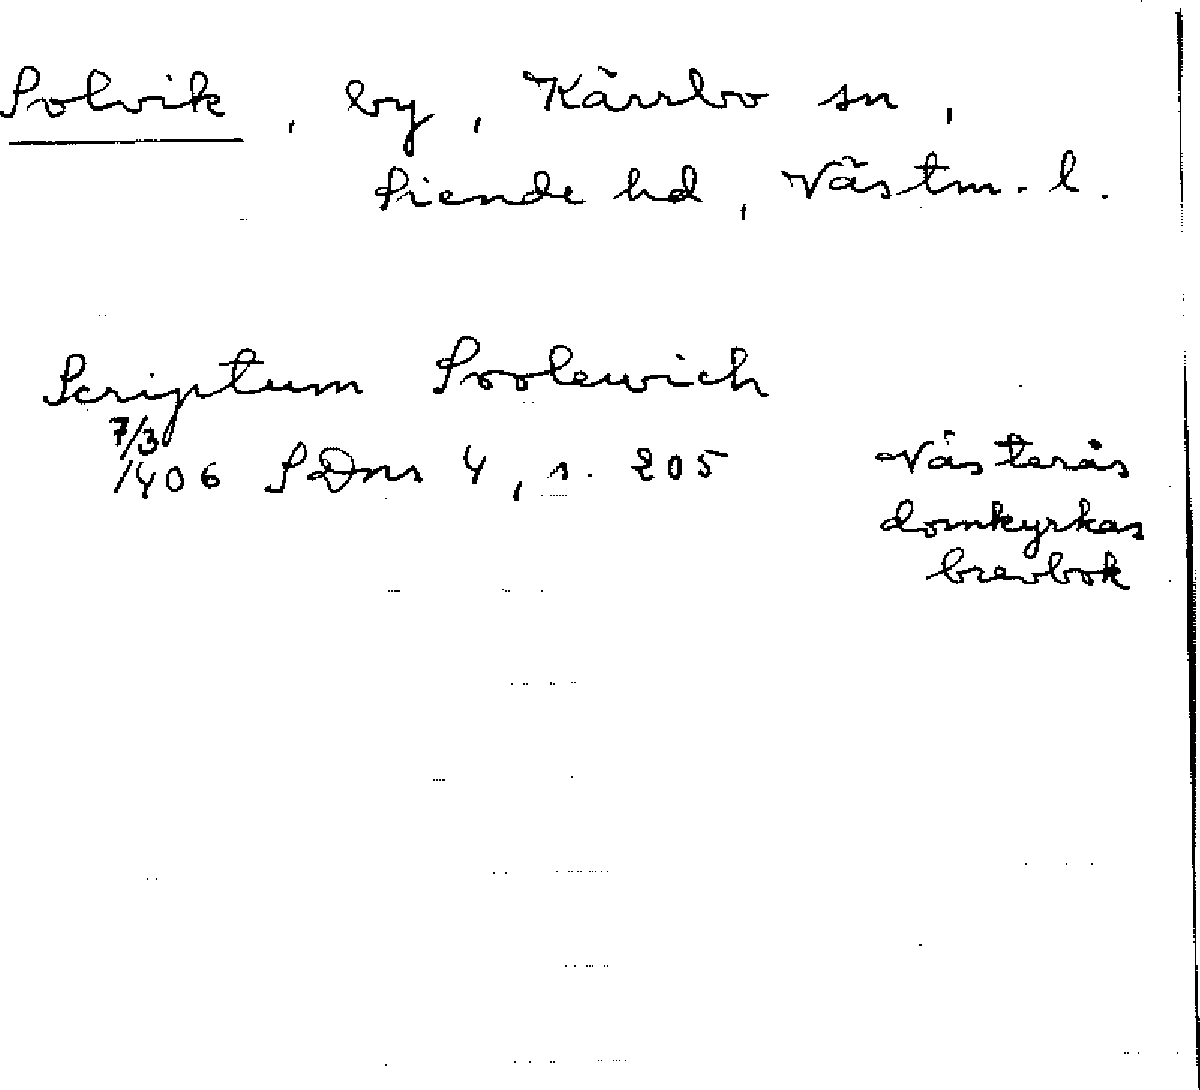 Solvik, by, Kärrbo sn,
Siende hd, Västm. l.
Scriptum Soolewich
7/3
1406 SDns 4, s. 205 Västerås
domkyrkas
brevbok